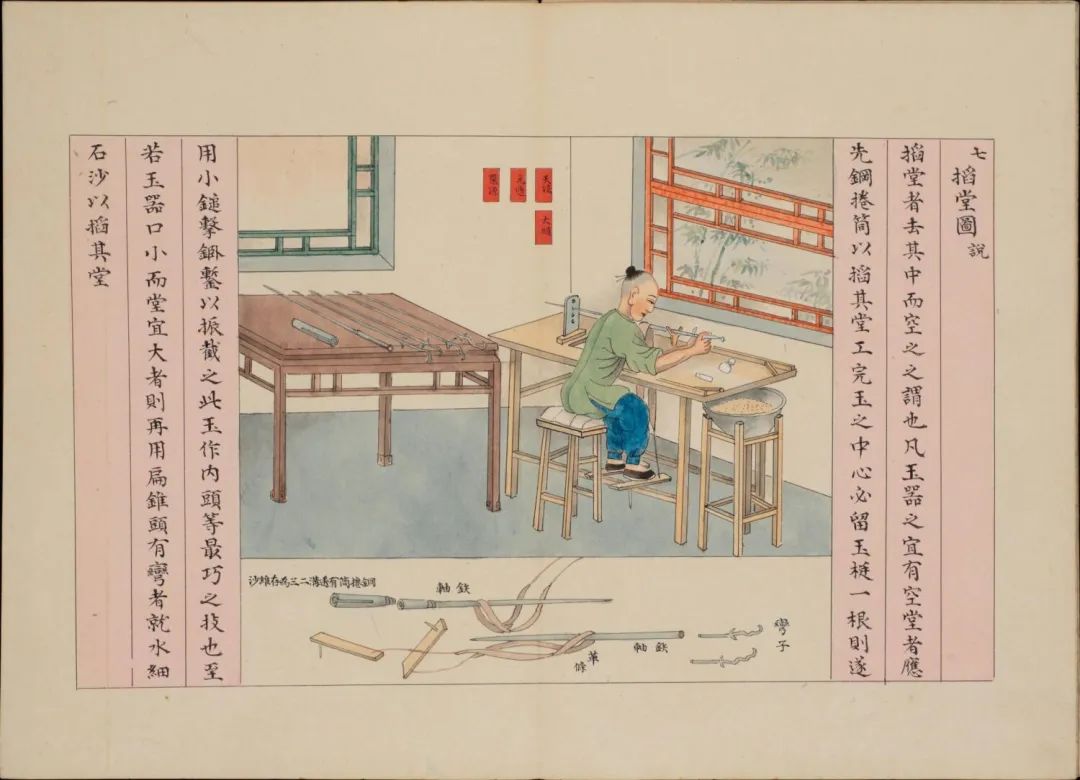 七
搯堂圖說
搯堂者去其中而空之之謂也凡玉器之宜有空堂者應
先鋼捲筒以搯其堂工完玉之中心必留玉梃一根則遂
用小鎚擊鋼鏨以振截之此玉作內頭等最巧之技也至
若玉器口小而堂宜大者則再用扁錐頭有彎者就水細
石沙以搯其堂
鋼捲筒有透溝二三為存堆沙
鉄軸
鉄軸
革條
彎子